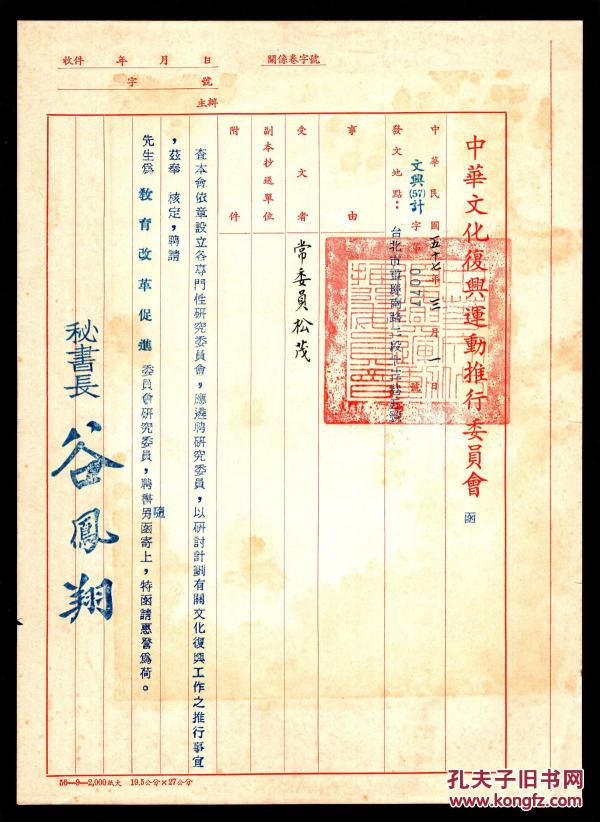 收件 年 月 日
字 號
主辦
關係卷字號
中華文化復興運動推行委員會 函
中華民國五十七年三月一日
文興(57)計字第0074號
發文地點：台北市
事由
受文者 常委員松茂
副本抄送單位
附件
查本會依章設立各專門性研究委員會，應遴聘研究委員，以研討計劃有關文化復興工作之推行事宜
，茲奉 核定，聘請
先生為 教育改革促進 委員會研究委員，聘書隨函寄上，特函請惠詧為荷。
秘書長 谷鳳翔
56—9—2,000紙大 19.5公分×27公分
孔夫子旧书网
www.kongfz.com